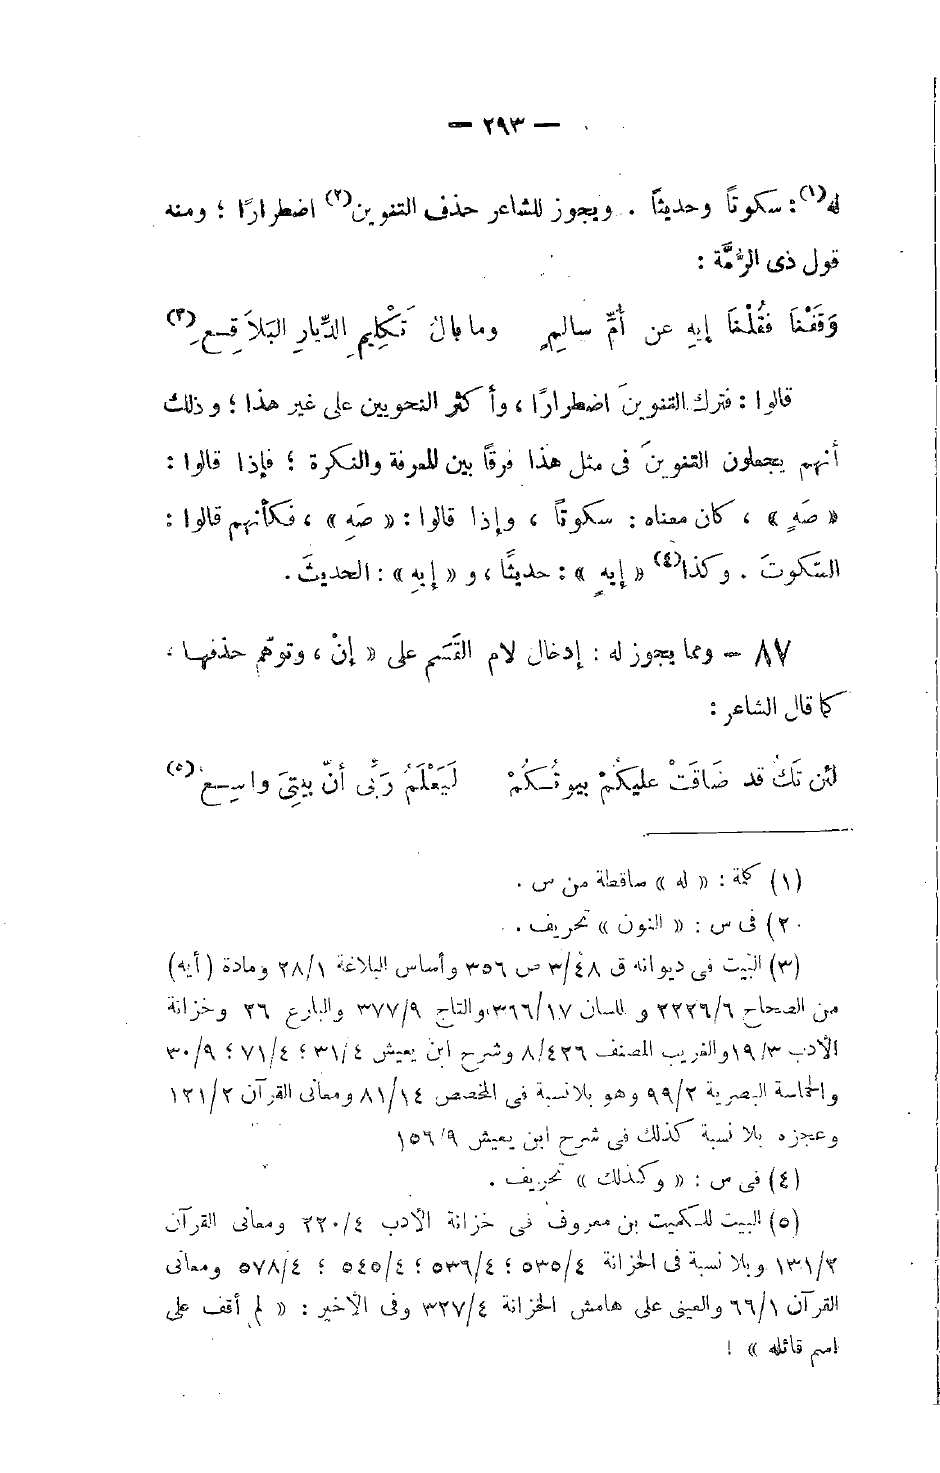 — ٢٩٣ —
له(١): سكوتاً وحديثاً . ويجوز للشاعر حذف التنوين(٢) اضطرارًا ؛ ومنه
قول ذى الرُّمَّة :
وَقَفْنَا فَقُلْنَا إيهِ عن أُمِّ سالِمٍ وما بالُ تَكْلِيمِ الدِّيارِ البَلاَقِعِ(٣)
قالوا : فترك التنوينَ اضطرارًا ، وأكثر النحويين على غير هذا ؛ وذلك
أنهم يجعلون التنوينَ فى مثل هذا فرقاً بين المعرفة والنكرة ؛ فإذا قالوا :
« صَهٍ » ، كان معناه : سكوتاً ، وإذا قالوا : « صَهِ » ، فكأنهم قالوا :
السّكوتَ . وكذا(٤) « إيهٍ » : حديثًا ، و « إيهِ » : الحديثَ .
٨٧ — ومما يجوز له : إدخال لام القَسَم على « إنْ ، وتوهّم حذفها ،
كما قال الشاعر :
لئن تَكُ قد ضَاقَتْ عليكُمْ بيوتُكُمْ لَيَعْلَمُ رَبِّى أنّ بيتِىَ واسِعُ(٥)
(١) كلمة : « له » ساقطة من س .
٢٠) فى س : « النون » تحريف .
(٣) البيت فى ديوانه ق ٣/٤٨ ص ٣٥٦ وأساس البلاغة ٢٨/١ ومادة (أيه)
من الصحاح ٢٢٢٦/٦ واللسان ٣٦٦/١٧ والتاج ٣٧٧/٩ والبارع ٢٦ وخزانة
الأدب ١٩/٣ والغريب المصنف ٨/٤٢٦ وشرح ابن يعيش ٣١/٤ ؛ ٧١/٤ ؛ ٣٠/٩
والحماسة البصرية ٩٩/٢ وهو بلا نسبة فى المخصص ٨١/١٤ ومعانى القرآن ١٢١/٢
وعجزه بلا نسبة كذلك فى شرح ابن يعيش ١٥٦/٩
(٤) فى س : « وكذلك » تحريف .
(٥) البيت للكميت بن معروف فى خزانة الأدب ٢٢٠/٤ ومعانى القرآن
١٣١/٢ وبلا نسبة فى الخزانة ٥٣٥/٤ ؛ ٥٣٦/٤ ؛ ٥٤٥/٤ ؛ ٥٧٨/٤ ومعانى
القرآن ٦٦/١ والعينى على هامش الخزانة ٣٢٧/٤ وفى الأخير : « لم أقف على
اسم قائله » !